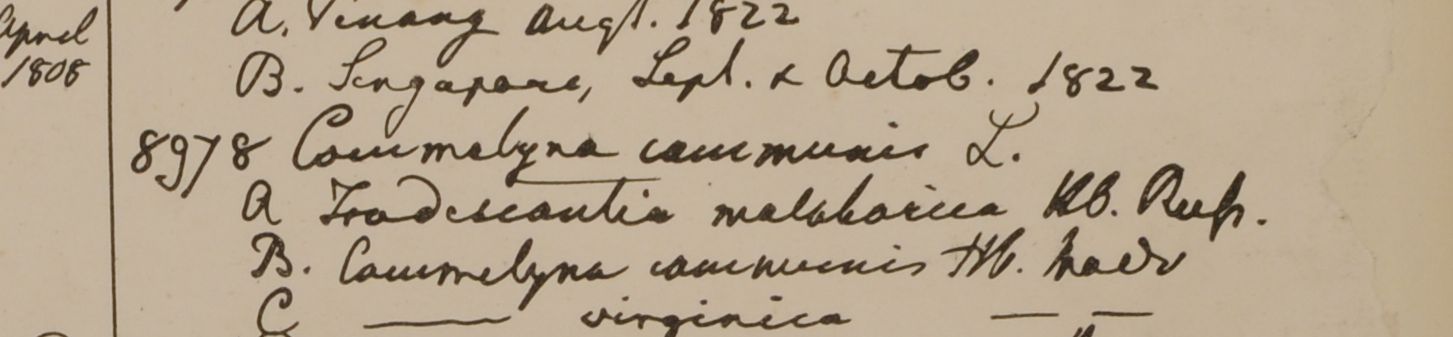 April
1808
A. Pinang Augt. 1822
B. Singapore, Sept. & Octob. 1822
8978 Commelyna communis L.
A Tradescantia malabarica Hb. Russ.
B. Commelyna communis Hb. Madr
C —— virginica — —